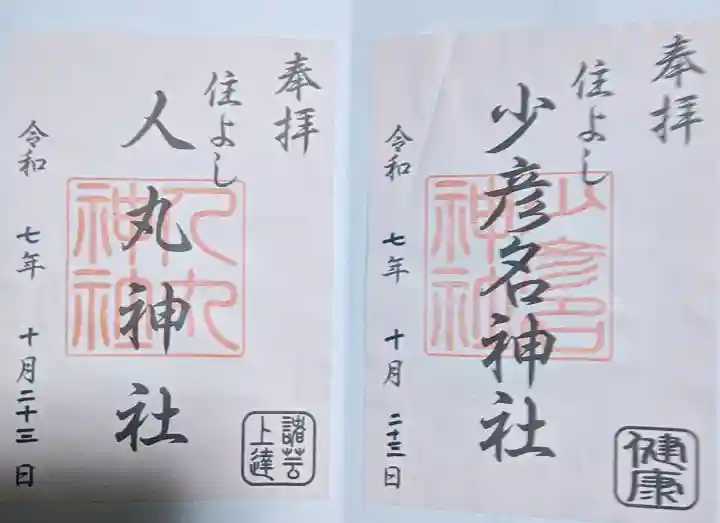 奉拝
住よし
少彦名神社
少彦名
神社
令和 七年 十月 二十三日
健康
奉拝
住よし
人丸神社
人丸
神社
令和 七年 十月 二十三日
諸芸
上達